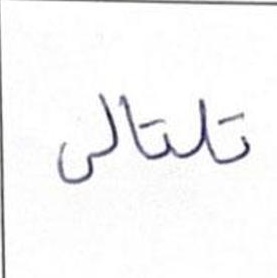 تلتالى